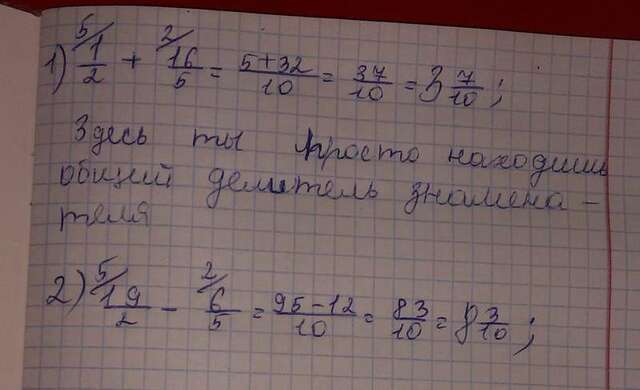 1) 5/ 1/2 + 2/ 16/5 = 5+32/10 = 37/10 = 3 7/10;
Здесь ты просто находишь
общий делитель знамена-
теля
2) 5/ 19/2 - 2/ 6/5 = 95-12/10 = 83/10 = 8 3/10;